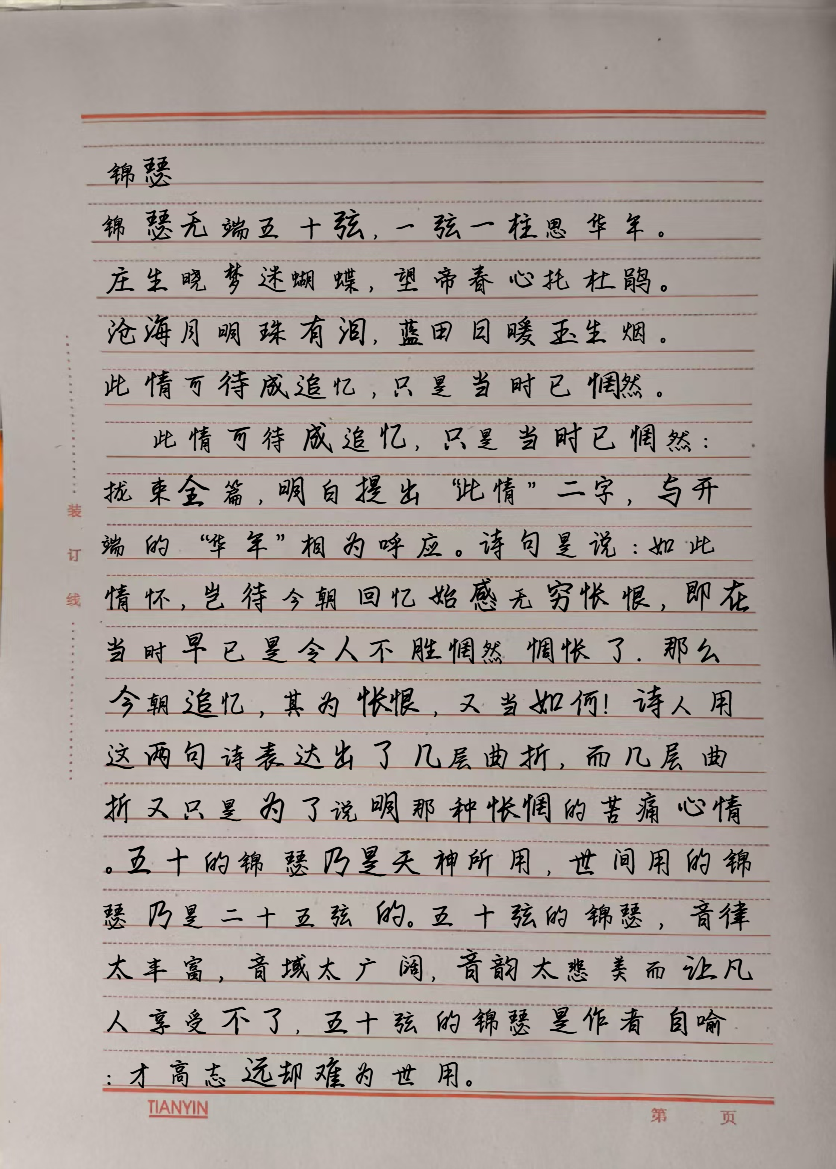 锦瑟
锦瑟无端五十弦,一弦一柱思华年。
庄生晓梦迷蝴蝶,望帝春心托杜鹃。
沧海月明珠有泪,蓝田日暖玉生烟。
此情可待成追忆,只是当时已惘然。
此情可待成追忆,只是当时已惘然:
拢束全篇,明白提出“此情”二字,与开
端的“华年”相为呼应。诗句是说:如此
情怀,岂待今朝回忆始感无穷怅恨,即在
当时早已是令人不胜惘然 惆怅了.那么
今朝追忆,其为怅恨,又当如何!诗人用
这两句诗表达出了几层曲折,而几层曲
折又只是为了说明那种怅惘的苦痛心情
。五十的锦瑟乃是天神所用,世间用的锦
瑟乃是二十五弦的。五十弦的锦瑟,音律
太丰富,音域太广阔,音韵太悲美而让凡
人享受不了,五十弦的锦瑟是作者自喻
:才高志远却难为世用。
装订线
TIANYIN
第 页